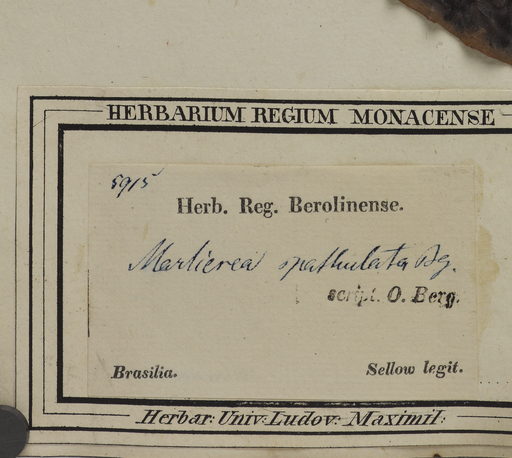 HERBARIUM REGIUM MONACENSE
5915
Herb. Reg. Berolinense.
Marlierea spathulata Bg.
script. O. Berg.
Brasilia. Sellow legit.
Herbar: Univ: Ludov: Maximil: